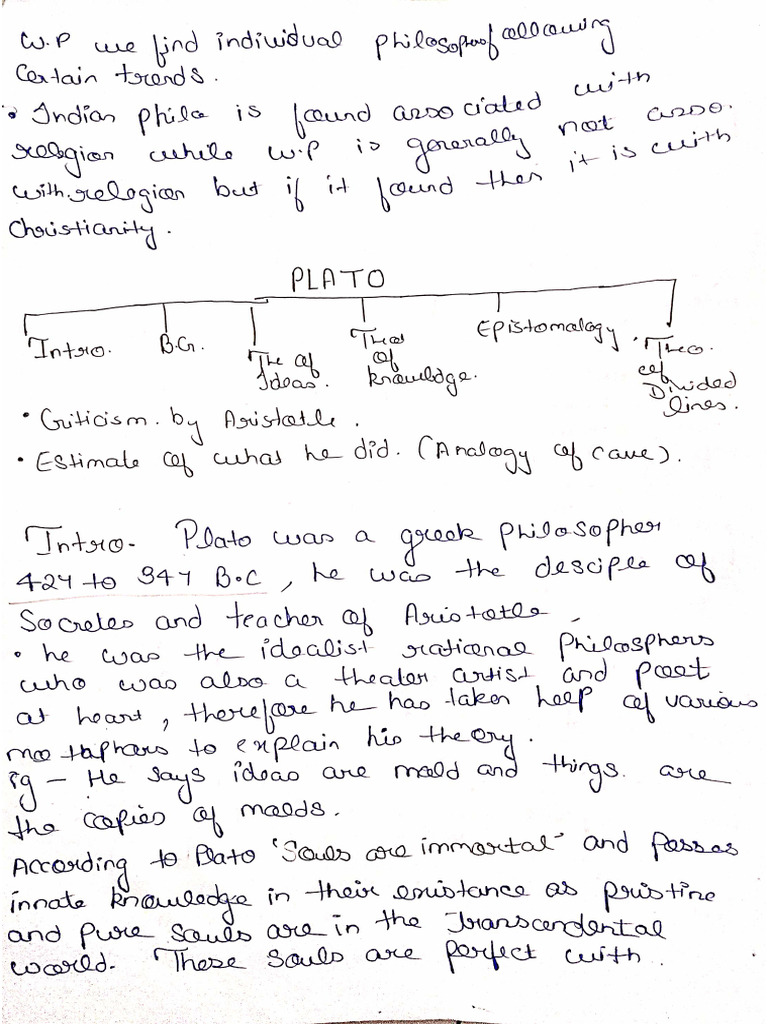 W.P we find individual philosopher following
Certain trends.
• Indian philo is found associated with
relogion while W.P is generally not asso.
with relogion but if it found then it is with
Christianity.
PLATO
Intro.
B.G.
The of
Ideas.
Theo
of
knowledge.
Epistomology.
Theo.
of
Divided
lines.
• Criticism. by Aristotle.
• Estimate of what he did. (Analogy of Cave).
Intro- Plato was a greek philosopher
424 to 347 B.C, he was the desciple of
Socretes and teacher of Aristotle,
• he was the idealist rational Philosphers
who was also a theater artist and poet
at heart, therefore he has taken help of various
metaphars to explain his theory.
ig - He says ideas are mold and things. are
the copies of molds.
According to Plato 'Souls are immortal' and Posses
innate knowledge in their existance as pristine
and pure souls are in the Transcendental
world. These souls are perfect with.